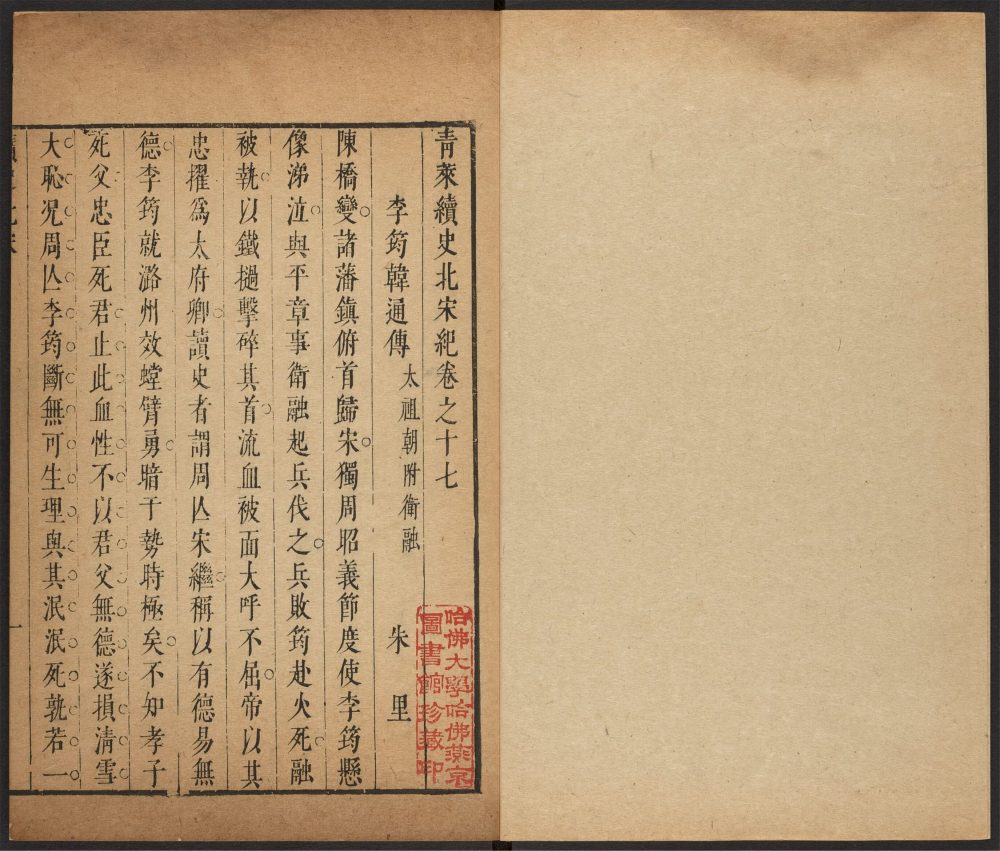 青萊續史北宋紀卷之十七
李筠韓通傳 太祖朝附衛融 朱里
陳橋變諸藩鎮俯首歸宋獨周昭義節度使李筠懸
像涕泣與平章事衛融起兵伐之兵敗筠赴火死融
被執以鐵撾擊碎其首流血被面大呼不屈帝以其
忠擢爲太府卿讀史者謂周亾宋繼稱以有德易無
德李筠就潞州效螳臂勇暗于勢時極矣不知孝子
死父忠臣死君止此血性不以君父無德遂損清雪
大恥况周亾李筠斷無可生理與其泯泯死孰若一
哈佛大學哈佛燕京
圖書館珍藏印